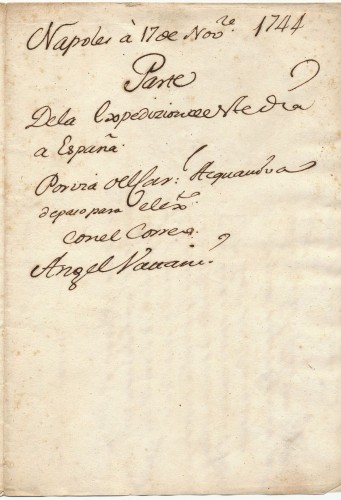 Napoles à 17 de Nov.re 1744
Parte
Dela Expedizion de este dia
a España.
Por via del Car.l Acquaviva
de paso para el ex.
con el Correo.
Angel Vattani.